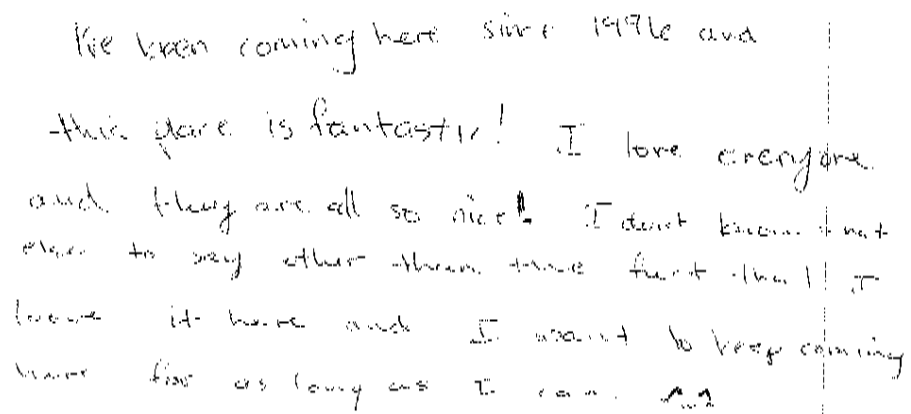 I've been coming here since 1996 and
this place is fantastic! I love everyone
and they are all so nice! I don't know what
else to say other than the fact that I
love it here and I want to keep coming
here for as long as I can. ^_^